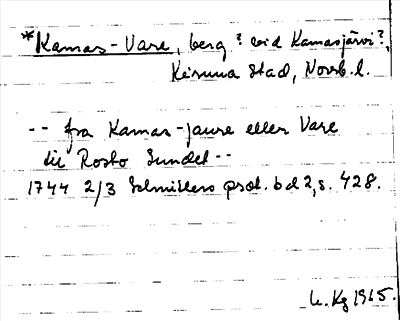 *Kamas-Vare, berg? vid Kamasjärvi?,
Kiruna stad, Norrb. l.
-- fra Kamas-jaure eller Vare
til Rosto Sundet --
1744 2/3 Schnitlers prot. bd 2, s. 428.
Kg 1965.